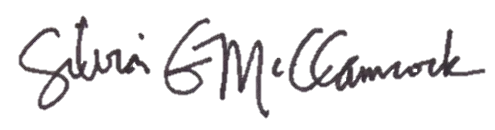 Silvia G McClamrock